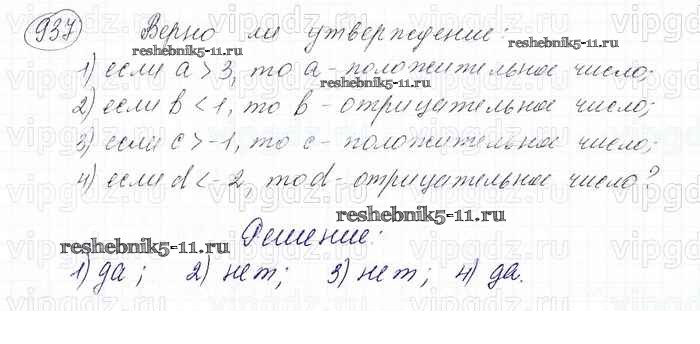 937 Верно ли утверждение:
reshebnik5-11.ru
1) если a > 3, то a - положительное число;
reshebnik5-11.ru
2) если b < 1, то b - отрицательное число;
3) если c > -1, то c - положительное число;
4) если d < -2, то d - отрицательное число?
reshebnik5-11.ru
Решение:
reshebnik5-11.ru
1) да; 2) нет; 3) нет; 4) да.